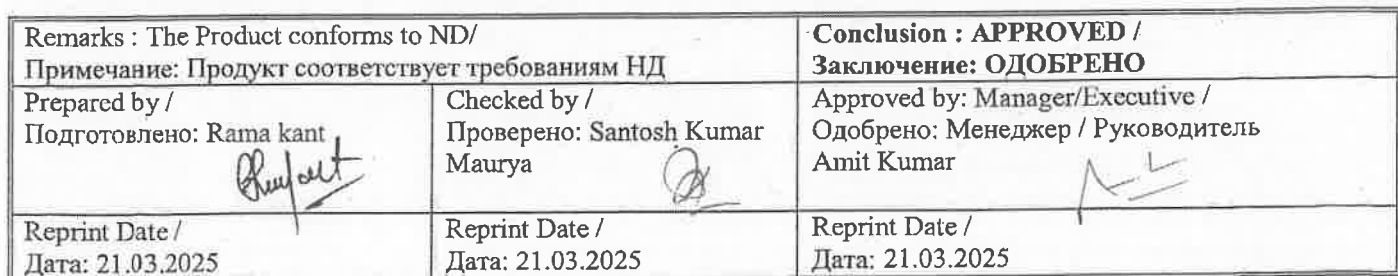 Remarks : The Product conforms to ND/
Примечание: Продукт соответствует требованиям НД
Conclusion : APPROVED /
Заключение: ОДОБРЕНО
Prepared by /
Подготовлено: Rama kant
Checked by /
Проверено: Santosh Kumar
Maurya
Approved by: Manager/Executive /
Одобрено: Менеджер / Руководитель
Amit Kumar
Reprint Date /
Дата: 21.03.2025
Reprint Date /
Дата: 21.03.2025
Reprint Date /
Дата: 21.03.2025